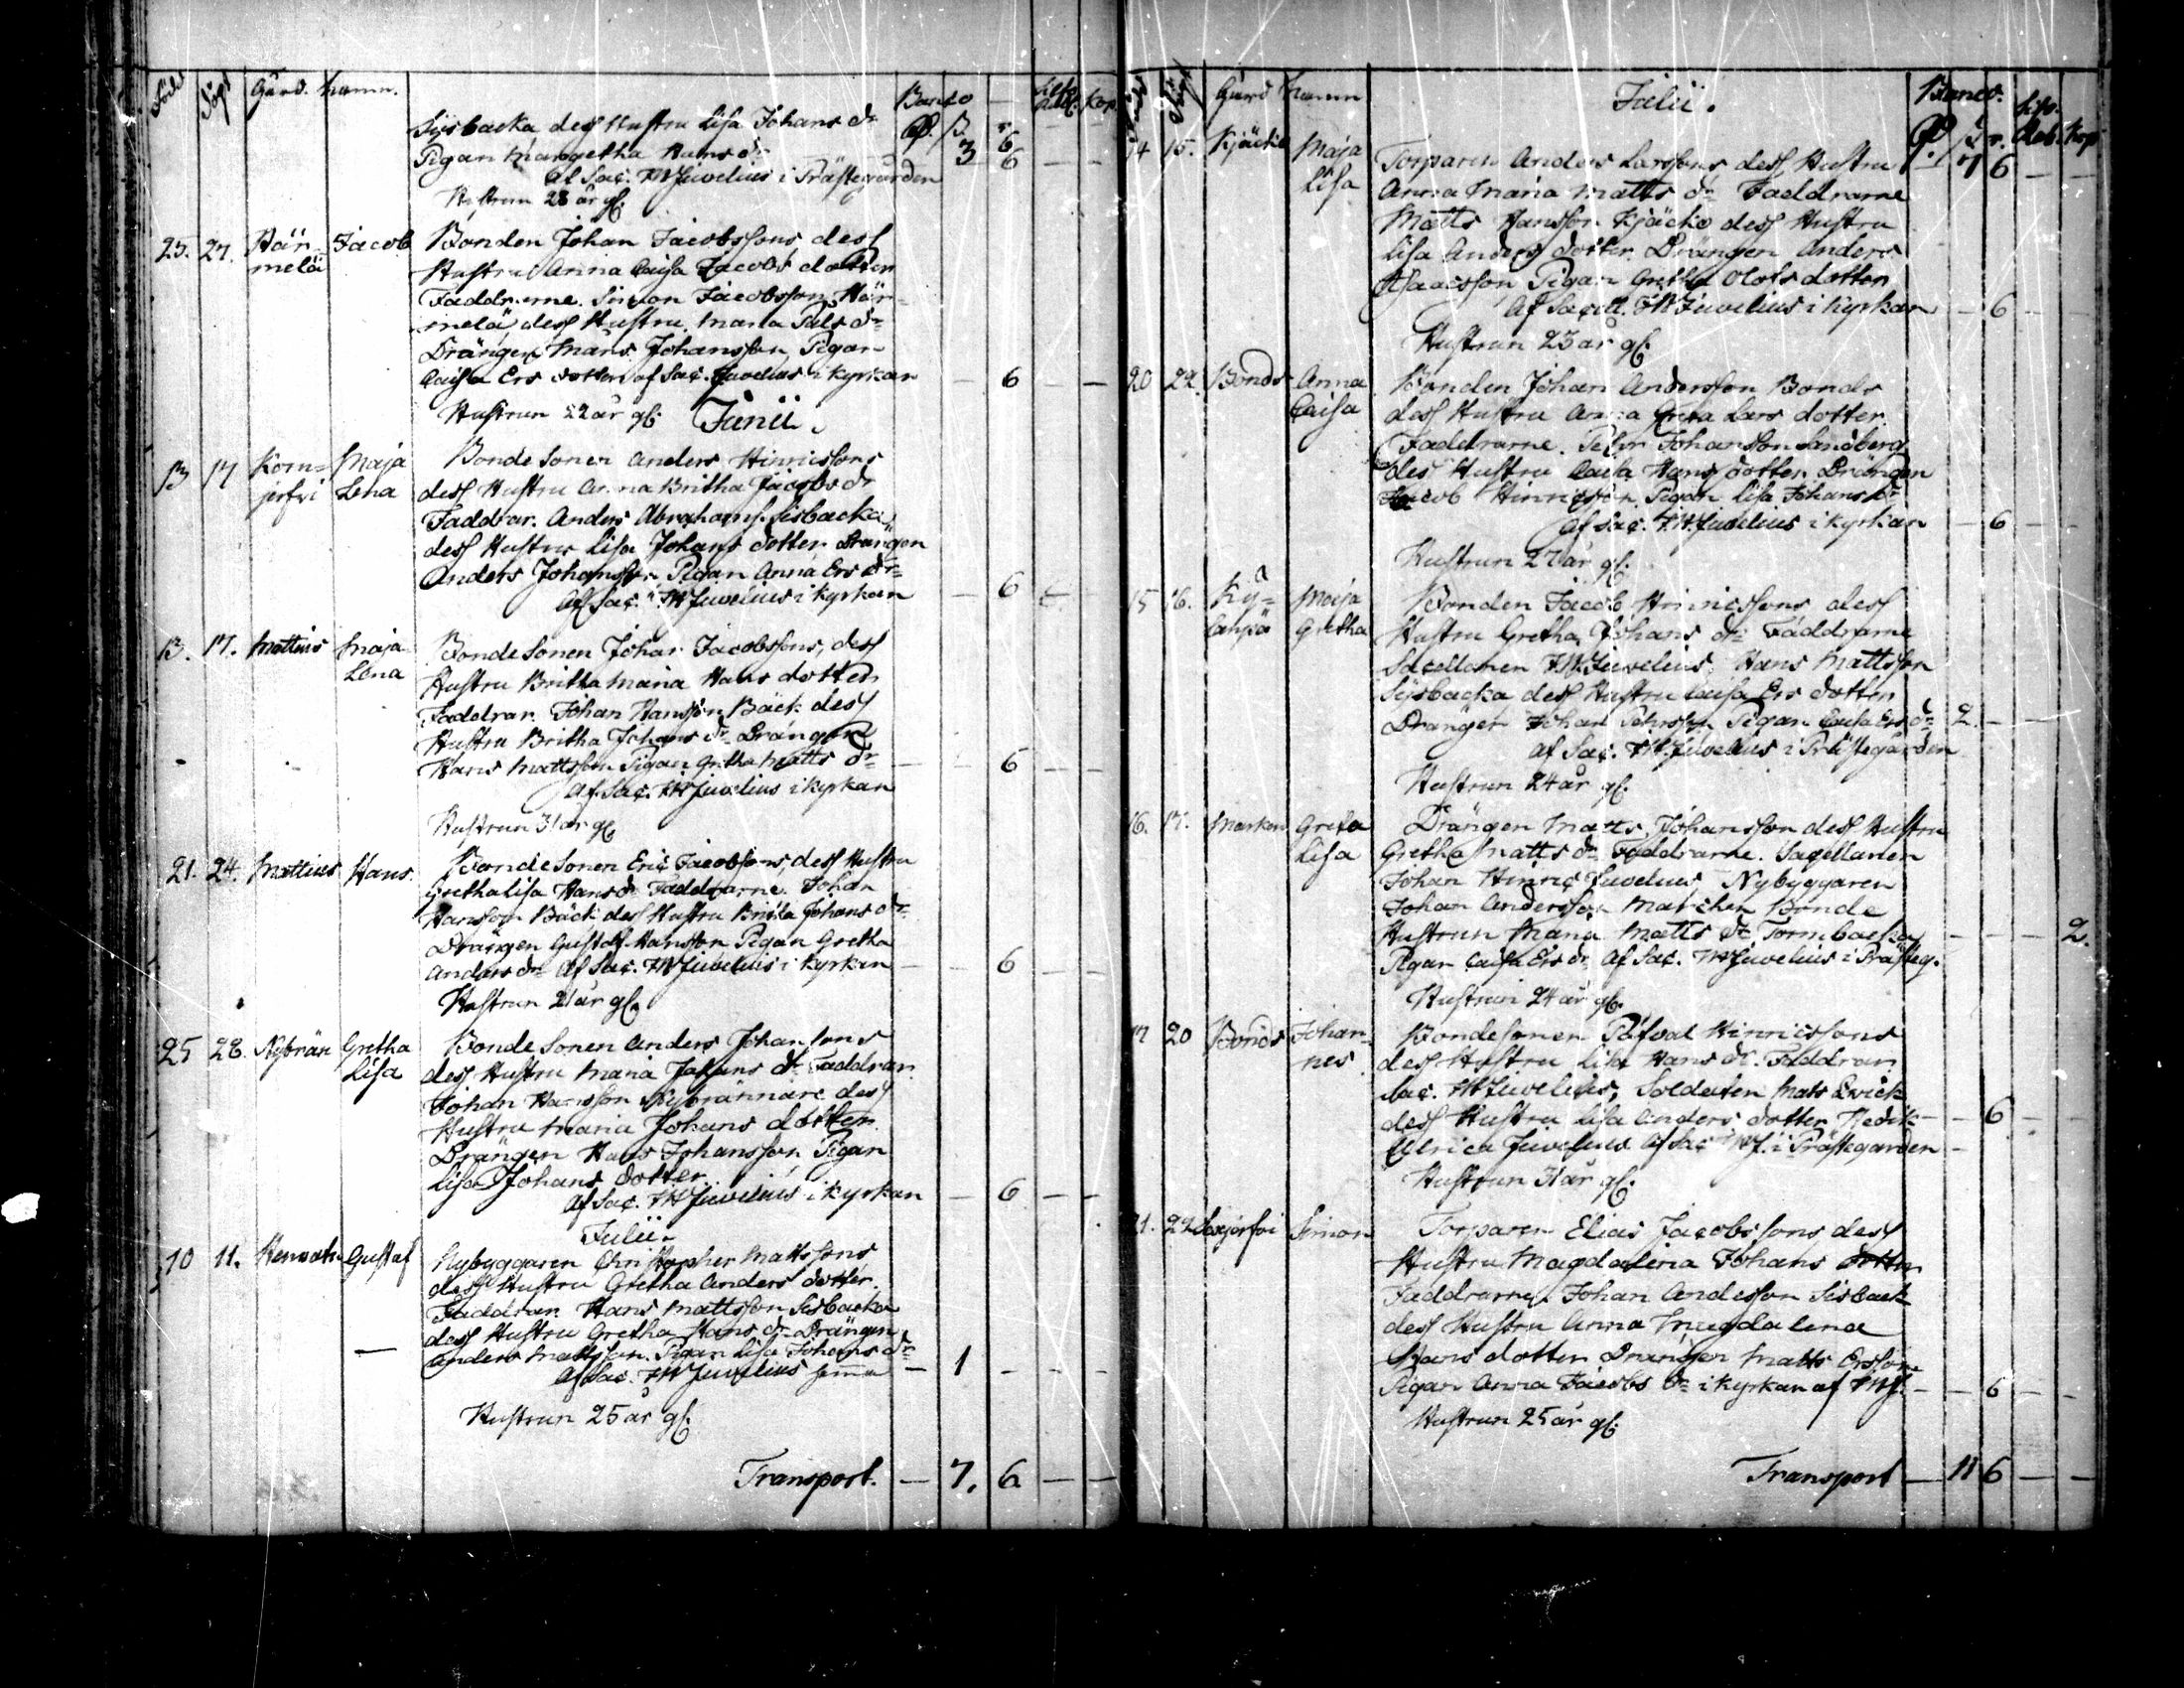 Född Döpt Gård. Namn. Banco Silfv. Rub. Kop.
Sisbacka dess Hustru Lisa Johans dr
Pigan Margetha Hans dr 3 6
Af Sac. JH Juvelius i Prästegården
Hustrun 28 år gl.
25. 27. Här- Jacob Bonden Johan Jacobssons dess
melä Hustru Anna Caisa Jacobs dotter
Faddrarne. Simon Jacobsson Här-
melä, dess Hustru Maria Pals dr
Drängen Måns Johansson, Pigan
Caisa Ers dotter af Sac. Juvelius i Kyrkan — 6 — —
Hustrun 22 år gl. Junii.
13 17 Kom- Maja Bonde Sonen Anders Hinricssons
jerfvi Lena dess Hustru Anna Britha Jacobs dr
Faddrar. Anders Abrahams. Sisbacka
dess Hustru Lisa Johans dotter Drängen
Anders Johansson, Pigan Anna Ers dr
Af Sac. JH Juvelius i Kyrkan — 6
13. 17. Mattius Maja Bonde Sonen Johan Jacobssons, dess
Lena Hustru Britha Maria Hans dotter
Faddrar. Johan Hansson Bäck dess
Hustru Britha Johans dr Drängen
Hans Mattsson Pigan Gretha Matts dr — — 6 — —
Af Sac. JH Juvelius i Kyrkan
Hustrun 31 år gl.
21. 24. Mattius Hans. Bonde Sonen Eric Jacobssons, dess Hustru
Gretha Lisa Hans dr Faddrarne. Johan
Hansson Bäck dess Hustru Britha Johans dr
Drängen Gustaf Hansson Pigan Gretha
Anders dr Af Sac. JH Juvelius i Kyrkan — — 6 — —
Hustrun 21 år gl.
25 28. Nybrän Gretha Bonde Sonen Anders Johanssons
Lisa dess Hustru Maria Johans dr Faddrar.
Johan Hansson Nybrännare dess
Hustru Maria Johans dotter.
Drängen Hans Johansson Pigan
Lisa Johans dotter.
Af Sac. JH Juvelius i Kyrkan — 6 — —
Julii.
10 11. Gustaf Nybyggaren Christopher Mattssons
dess Hustru Gretha Anders dotter.
Faddrar. Hans Mattsson Sisbacka
dess Hustru Gretha Hans dr Drängen
Anders Mattsson. Pigan Lisa Johans dr
Af Sac. JH Juvelius hemma — 1 - - -
Hustrun 25 år gl.
Transport. — 7. 6 — —
Gård Namn Julii. Banco. Silfv. Rub. Kop
14 15. Kjäcke Maja Torparen Anders Larssons dess Hustru — 7 6 — —
Lisa Anna Maria Matts dr Faddrarne
Matts Hansson Kjäcke dess Hustru
Lisa Anders dotter. Drängen Anders
Isaacsson Pigan Gretha Olofs dotter
Af Sacell. JH Juvelius i Kyrkan — 6 — —
Hustrun 23 år gl.
20 22. Bonds Anna Bonden Johan Andersson Bonds
Caisa dess Hustru Anna Greta Lars dotter
Faddrarne. Pehr Johansson Sandberg
des Hustru Caisa Hans dotter Drängen
Jacob Hinricsson Pigan Lisa Johans dr
Af Sac. JH Juvelius i Kyrkan — 6 — —
Hustrun 27 år gl.
15 16. Ky- Maja Bonden Jacob Hinricssons dess
lanpä Gretha Hustru Gretha Johans dr Faddrarne
Sacellanen JH Juvelius, Hans Mattsson
Sisbacka dess Hustru Caisa Ers dotter
Drängen Johan Pehrsson Pigan Caisa Ers dr 2. — —
af Sac. JH Juvelius i Prästegården
Hustrun 24 år gl.
16. 17. Marken Greta Drängen Matts Johansson dess Hustru
Lisa Gretha Matts dr Faddrarne. Sacellanen
Johan Hinric Juvelius, Nybyggaren
Johan Andersson Marcken Bonde
Hustrun Maria Matts dr Tormbacka — — — 2.
Pigan Caisa Ers dr Af Sac. JH Juvelius i Prästeg.
Hustrun 24 år gl.
17 20 Bonds Johan- Bondesonen Påfval Hinricssons
nes dess Hustru Lisa Hans dr. Faddrar.
Sac. JH Juvelius, Soldaten Mats Qvick
dess Hustru Lisa Anders dotter Hedvik — 6 —
Ulrica Juvelius Af Sac JHJ. i Prästegården —
Hustrun 31 år gl.
21. 22 Simon Torparen Elias Jacobssons dess
Hustru Magdalena Johans dotter
Faddrarne. Johan Andesson Sisback
dess Hustru Anna Magdalena
Hans dotter Drängen Matts Ersson
Pigan Anna Jacobs dr i Kyrkan af JHJ. — — 6 — —
Hustrun 25 år gl.
Transport — 11 6 — —